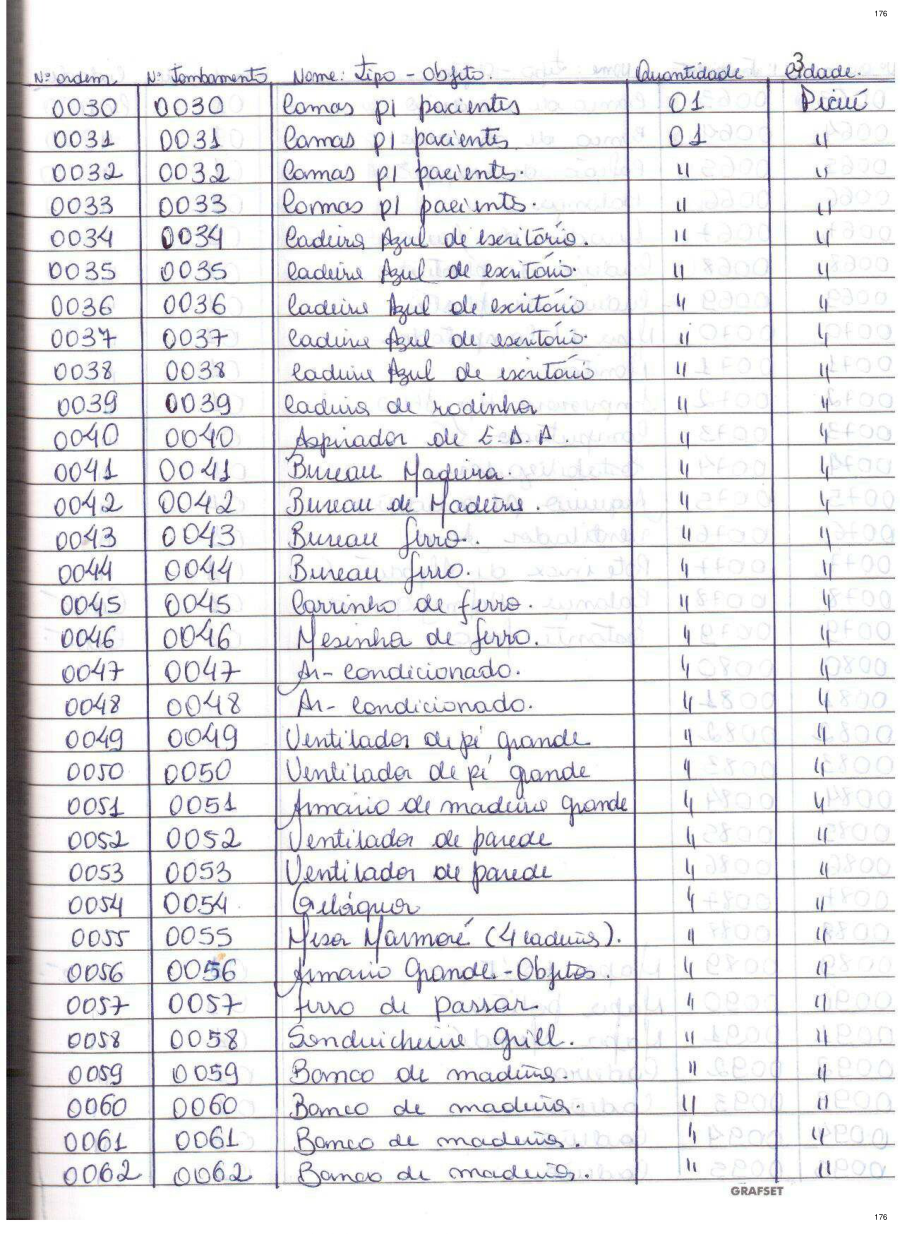 176
3
Nº ordem Nº Tombamento Nome: Tipo - Objeto. Quantidade Cidade.
0030 0030 Camas p/ pacientes 01 Picuí
0031 0031 Camas p/ pacientes. 01 "
0032 0032 Camas p/ pacientes. " "
0033 0033 Camas p/ pacientes. " "
0034 0034 Cadeira Azul de escritório. " "
0035 0035 Cadeira Azul de escritório. " "
0036 0036 Cadeira Azul de escritório " "
0037 0037 Cadeira Azul de escritório. " "
0038 0038 Cadeira Azul de escritório " "
0039 0039 Cadeira de rodinha " "
0040 0040 Aspirador de E.D.A. " "
0041 0041 Bureau Madeira. " "
0042 0042 Bureau de Madeira. " "
0043 0043 Bureau ferro. " "
0044 0044 Bureau ferro. " "
0045 0045 Carrinho de ferro. " "
0046 0046 Mesinha de ferro. " "
0047 0047 Ar-condicionado. " "
0048 0048 Ar-condicionado. " "
0049 0049 Ventilador de pé grande " "
0050 0050 Ventilador de pé grande " "
0051 0051 Armário de madeira grande " "
0052 0052 Ventilador de parede " "
0053 0053 Ventilador de parede " "
0054 0054 Gelágua " "
0055 0055 Mesa Marmoré (4 cadeiras). " "
0056 0056 Armario Grande - Objetos. " "
0057 0057 ferro de passar " "
0058 0058 Sanduicheira Grill. " "
0059 0059 Banco de madeira. " "
0060 0060 Banco de madeira. " "
0061 0061 Banco de madeira. " "
0062 0062 Banco de madeira. " "
GRAFSET
176